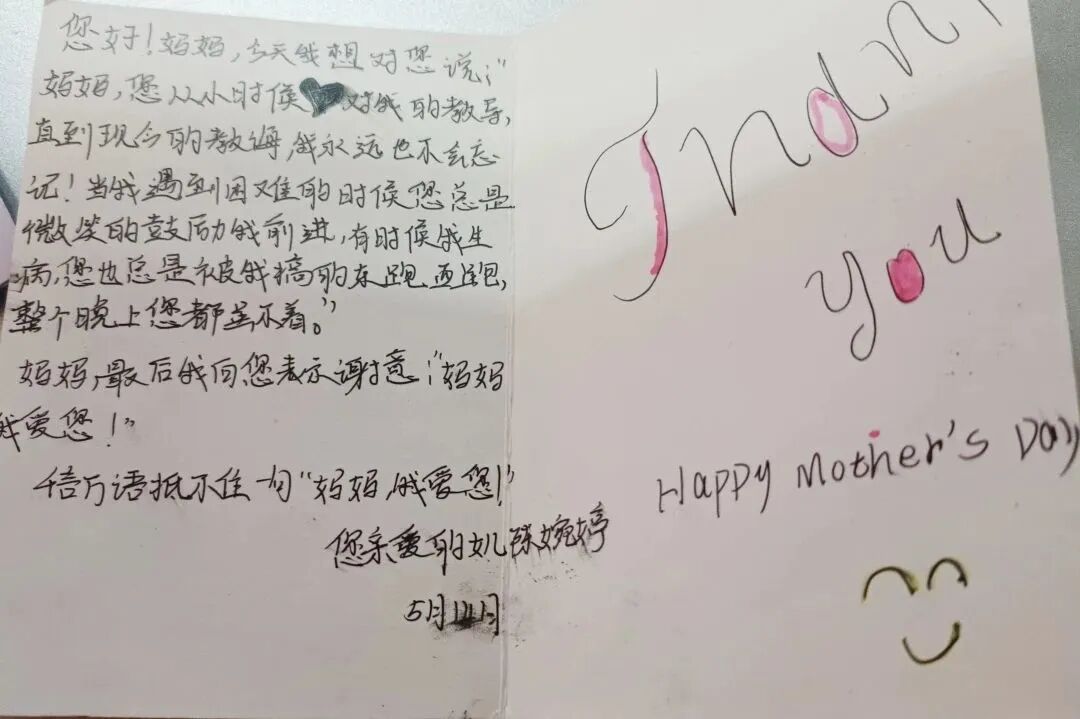 您好！妈妈，今天我想对您说：“
妈妈，您从小时候对我的教导，
直到现今的教诲，我永远也不会忘
记！当我遇到困难的时候您总是
微笑的鼓励我前进，有时候我生
病，您也总是被我搞的东跑西跑，
整个晚上您都睡不着。”
妈妈，最后我向您表示谢意：“妈妈
我爱您！”
千言万语抵不住一句“妈妈，我爱您！”
您亲爱的女儿陈婉婷
5月日
Thank
you
Happy Mother's Day